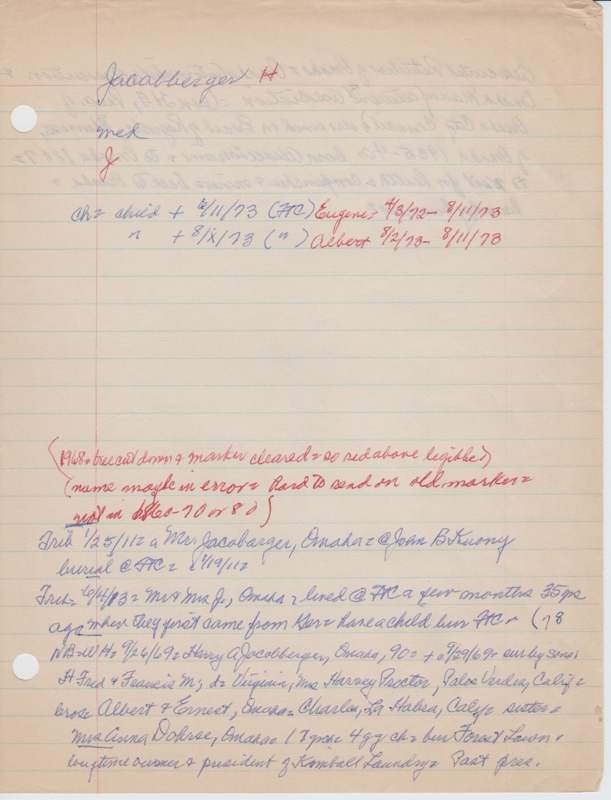 Jacobberger H
mck
J
ch = child + 6/11/73 (FtC) Eugene = 4/3/72 - 8/11/73
" + 8/ /73 (") Albert 8/2/73 - 8/11/73
(1968 = tree cut down & marker cleared = so red above legible)
(name maybe in error = Hard to read on old marker =
not in 1860-70 or 80)
Trib 1/25/11 = a Mrs Jacobarger, Omaha = @ John B Kuony
burial @ FtC = 1/19/11 =
Trib = 6/4/03 = Mr & Mrs J, Omaha = lived @ FtC a few months 35 yrs
ago when they first came from Ger = have a child bur FtC ( 78
NB-WH = 9/26/69 = Harry A Jacobberger, Omaha, 90 = + 9/29/69 = sur by sons:
H Fred & Francis M; d = Virginia, Mrs Harvey Proctor, Palos Verdes, Calif =
bros = Albert & Ernest, Omaha = Charles, La Habra, Calif = sister =
Mrs Anna Dohrse, Omaha = 17 gch = 4 gg ch = bur Forest Lawn =
longtime owner & president of Kimball Laundry = Past pres.